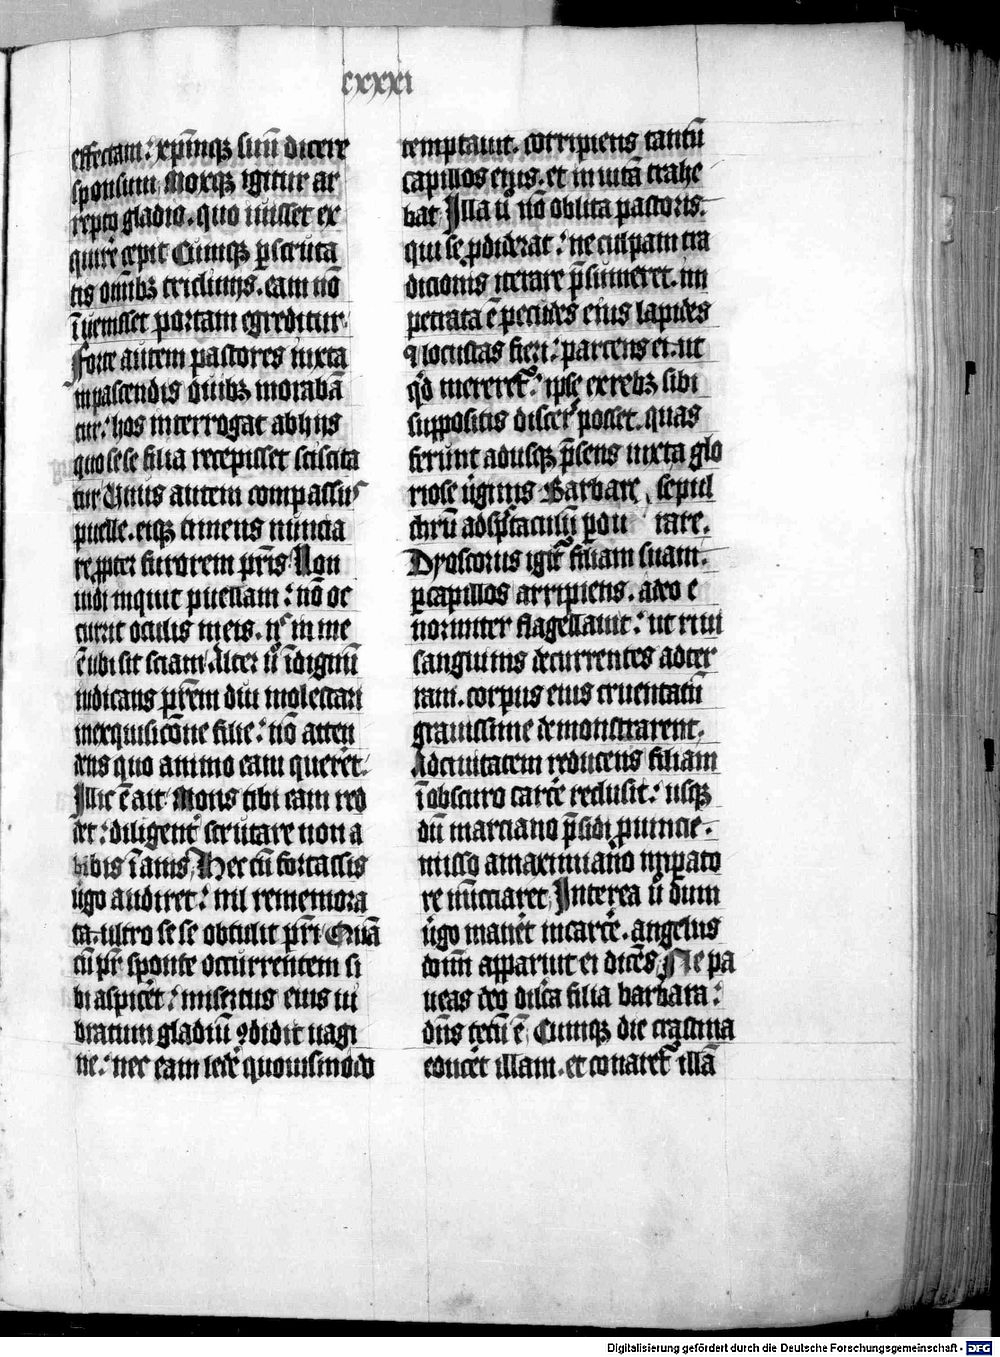 cxxxi
effectam: xp̄mqꝫ suū dicere
sponsum Moxqꝫ igitur ar
repto gladio. quo iusset ex
quirē cepit Cumqꝫ ꝑscruta
tis om̄ibꝫ tricliniis. eam nō
īuenisset portam egreditur.
Forte autem pastores iuxta
in pascendis ouibꝫ morabā
tur: hos interrogat ab hijs
quo sese filia recepisset sciscita
tur Unus autem compassus
puelle. eiꝫ timens nuncia
re ꝓpter furorem pr̄is Non
uidi inquit puellam: nō oc
currit oculis meis.
ē ubi sit sciam. Alter ū īdignū
iudicans pr̄em diu molestari
in exquisicōne filie: nō atten
dens quo animo eam querēt.
Illic ē ait Mons tibi eam red
det: diligent scrutare non a
bibis īanis Hec cū fortassis
ūgo audiret: nil rememora
ta. ultro se se obtulit pr̄i Quā
cū pr̄ sponte occurrentem si
bi aspicēt: misertus eius ui
bratum gladiū ꝯdidit uagi
ne: nec eam ledē quouismodo
temptauit. corripiens tantū
capillos eius. et inuitā trahe
bat Illa ū nō oblita pastoris.
qui se ꝓdiderat: ne culpam tra
dicionis iterare p̄sumeret. im
petrata ē pecudes eius lapides
ꝯ locustas fieri: parcens ei. ut
qd̄ mereret: ipse ex rebꝫ sibi
suppositis discer̄ posset. quas
ferunt adusqꝫ p̄sens iuxta glo
riose ūginis Barbare sepul
chrū ad sp̄taculū pou rare.
Dyoscorus igit̄ filiam suam.
ꝑ capillos arripiens. adeo e
normiter flagellauit: ut riui
sanguinis decurrentes ad ter
ram. corpus eius cruentatū
grauissime demonstrarent.
Ad ciuitatem reducens filiam
ī obscuro carcē reclusit: usqꝫ
dū marciano p̄sidi ꝓuincie.
misso a maximiano impato
re nūciaret Interea ū dum
ūgo manēt in carcē. angelus
dom̄ apparuit ei dicēs Ne pa
ueas deo dilc̄a filia barbara:
dn̄s tecū ē Cumqꝫ die crastina
educēt illam. et conaret̄ illā
Digitalisierung gefördert durch die Deutsche Forschungsgemeinschaft - DFG